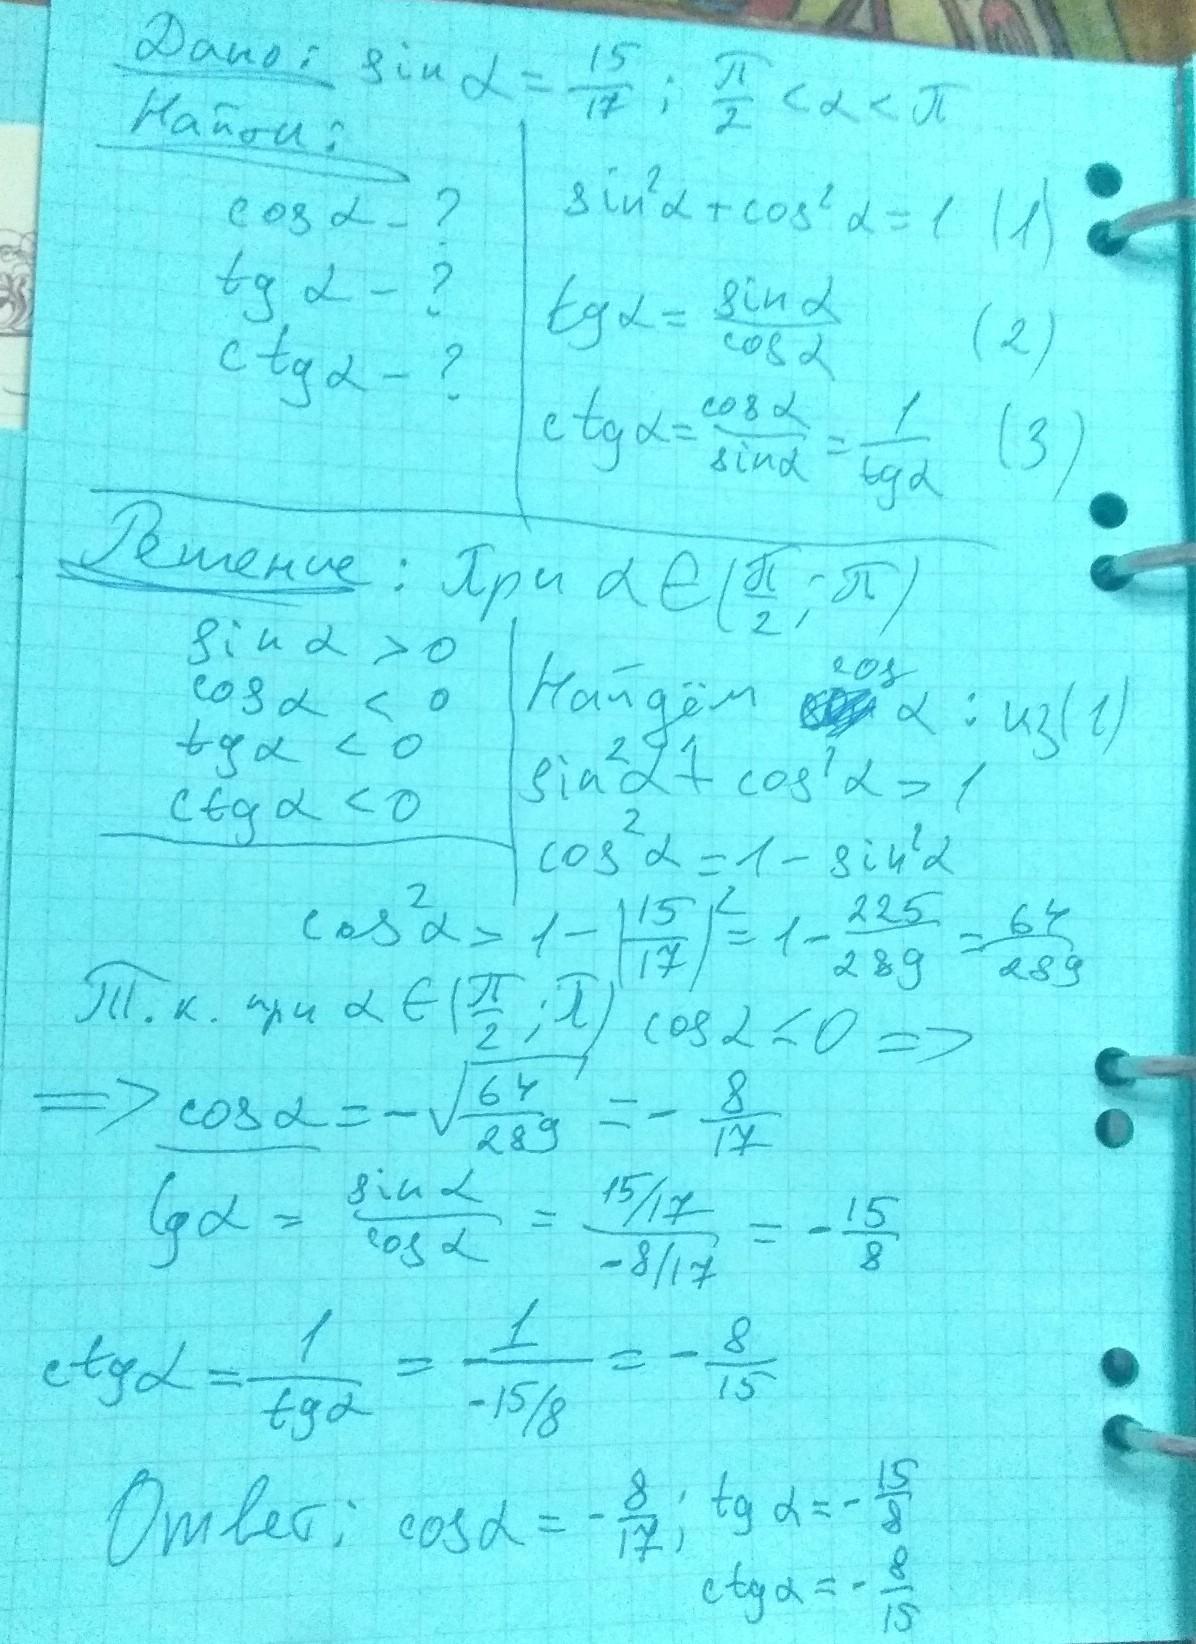 Дано: sin α = 15/17; π/2 < α < π
Найти:
cos α - ?
tg α - ?
ctg α - ?
sin²α + cos²α = 1 (1)
tg α = sin α / cos α (2)
ctg α = cos α / sin α = 1 / tg α (3)
Решение: При α ∈ (π/2; π)
sin α > 0
cos α < 0
tg α < 0
ctg α < 0
Найдём cos α: из (1)
sin²α + cos²α = 1
cos²α = 1 - sin²α
cos²α = 1 - (15/17)² = 1 - 225/289 = 64/289
Т.к. при α ∈ (π/2; π) cos α < 0 =>
=> cos α = -√(64/289) = - 8/17
tg α = sin α / cos α = (15/17) / (-8/17) = - 15/8
ctg α = 1 / tg α = 1 / (-15/8) = - 8/15
Ответ: cos α = - 8/17; tg α = - 15/8
ctg α = - 8/15